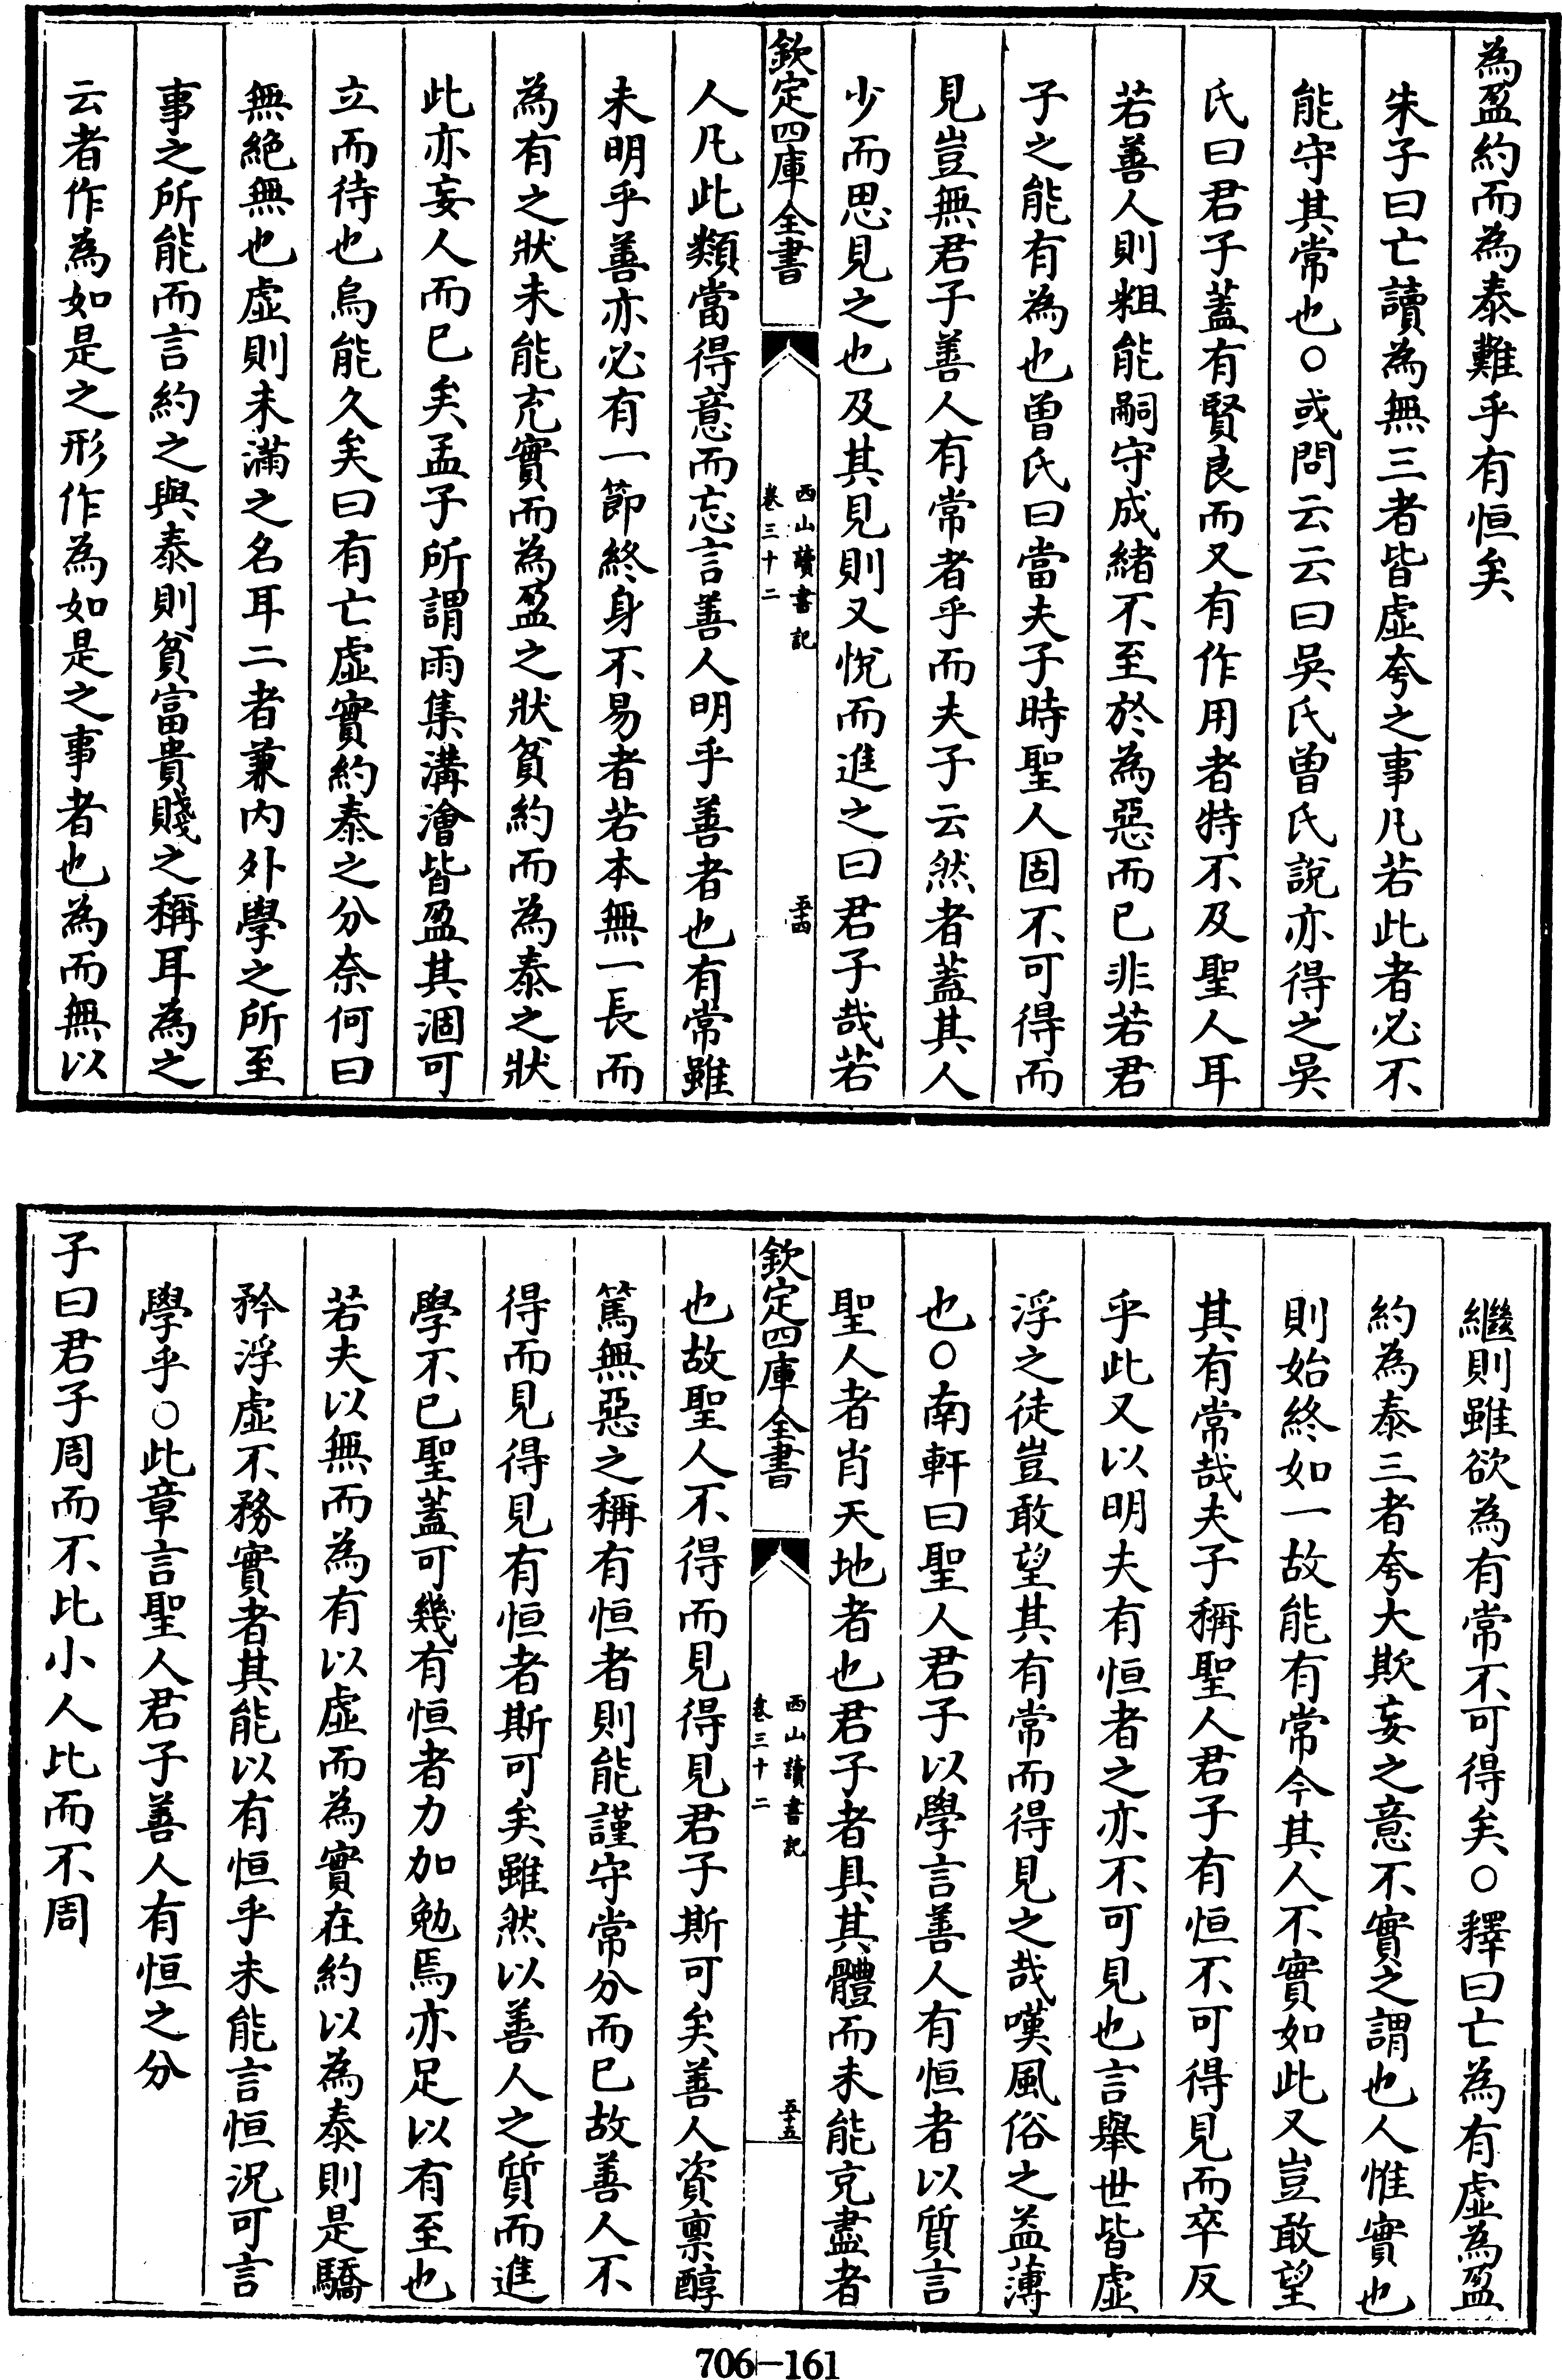 為盈約而為泰難乎有恒矣
朱子曰亡讀為無三者皆虛夸之事凡若此者必不
能守其常也○或問云云曰吳氏曽氏說亦得之吳
氏曰君子蓋有賢良而又有作用者特不及聖人耳
若善人則粗能嗣守成緒不至於為惡而已非若君
子之能有為也曽氏曰當夫子時聖人固不可得而
見豈無君子善人有常者乎而夫子云然者蓋其人
少而思見之也及其見則又悅而進之曰君子哉若
欽定四庫全書
西山讀書記
卷三十二
五十四
人凡此類當得意而忘言善人明乎善者也有常雖
未明乎善亦必有一節終身不易者若本無一長而
為有之狀未能充實而為盈之狀貧約而為泰之狀
此亦妄人而已矣孟子所謂雨集溝澮皆盈其涸可
立而待也烏能久矣曰有亡虛實約泰之分奈何曰
無絕無也虛則未滿之名耳二者兼内外學之所至
事之所能而言約之與泰則貧富貴賤之稱耳為之
云者作為如是之形作為如是之事者也為而無以
繼則雖欲為有常不可得矣○釋曰亡為有虛為盈
約為泰三者夸大欺妄之意不實之謂也人惟實也
則始終如一故能有常今其人不實如此又豈敢望
其有常哉夫子稱聖人君子有恒不可得見而卒反
乎此又以明夫有恒者之亦不可見也言舉世皆虛
浮之徒豈敢望其有常而得見之哉嘆風俗之益薄
也○南軒曰聖人君子以學言善人有恒者以質言
聖人者肖天地者也君子者具其體而未能充盡者
欽定四庫全書
西山讀書記
卷三十二
五十五
也故聖人不得而見得見君子斯可矣善人資稟醇
篤無惡之稱有恒者則能謹守常分而已故善人不
得而見得見有恒者斯可矣雖然以善人之質而進
學不已聖蓋可幾有恒者力加勉焉亦足以有至也
若夫以無而為有以虛而為實在約以為泰則是驕
矜浮虛不務實者其能以有恒乎未能言恒況可言
學乎○此章言聖人君子善人有恒之分
子曰君子周而不比小人比而不周
706-161